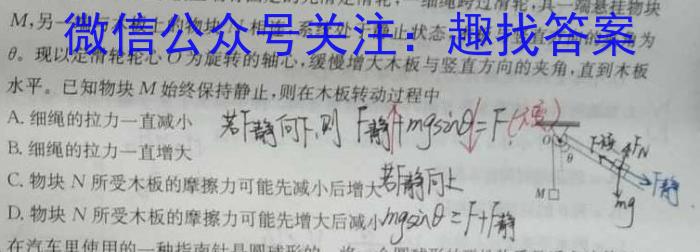 细绳跨过滑轮,其一端悬挂物块
M,另一
微信公众号关注:趣找答案
θ。现以定滑轮轮心O为旋转的轴心,缓慢增大木板与竖直方向的夹角,直到木板
水平。已知物块M始终保持静止,则在木板转动过程中
A. 细绳的拉力一直减小
若F静向下,则 F静+mgsinθ=F
B. 细绳的拉力一直增大
C. 物块N所受木板的摩擦力可能先减小后增大
若F静向上
D. 物块N所受木板的摩擦力可能先增大后减小
mgsinθ=F+F静
O
θ
FN
M
mg
F静
在汽车里使用的一种指南针是圆球形的